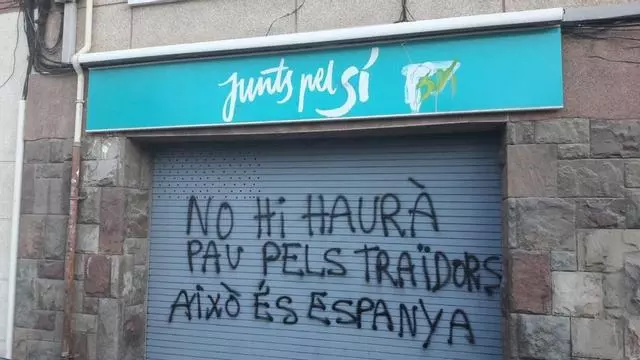 Junts pel Sí
NO Hi HAURÀ
PAU PELS TRAÏDORS
AiXÒ ÉS ESPANYA